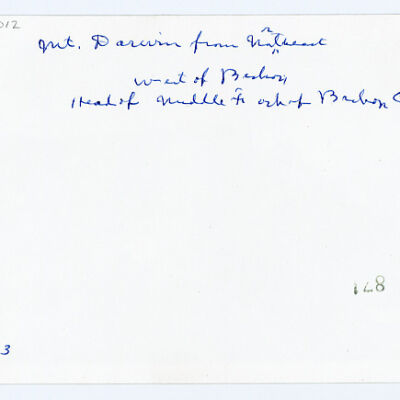 012
Mt. Darwin from Northeast
west of Bishop
Head of Middle Fork of Bishop C
128
3